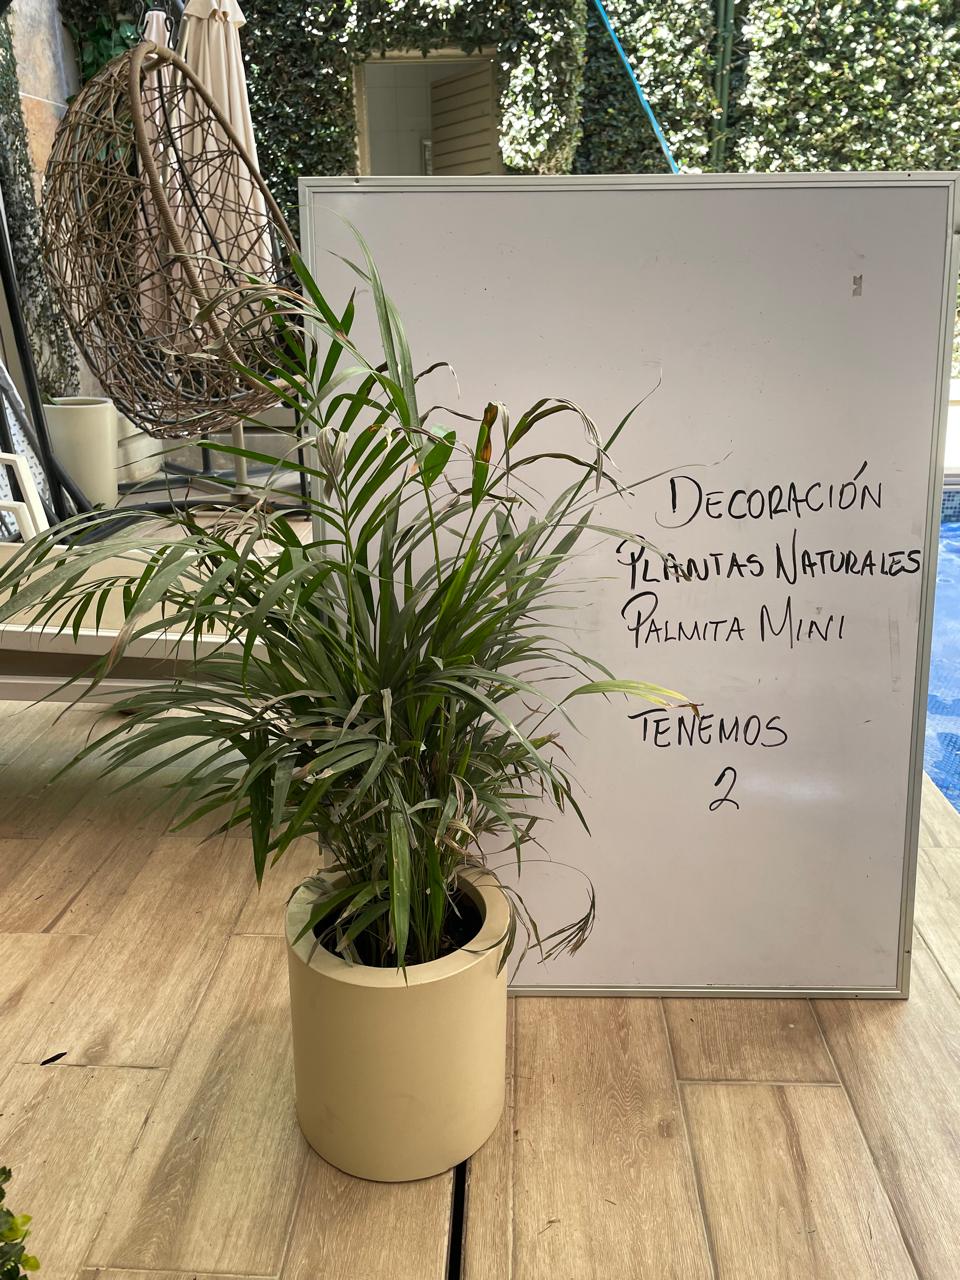 DECORACIÓN
PLANTAS NATURALES
PALMITA MINI
TENEMOS
2